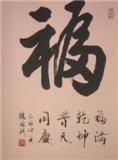 福
福滿
乾坤
普天
同慶